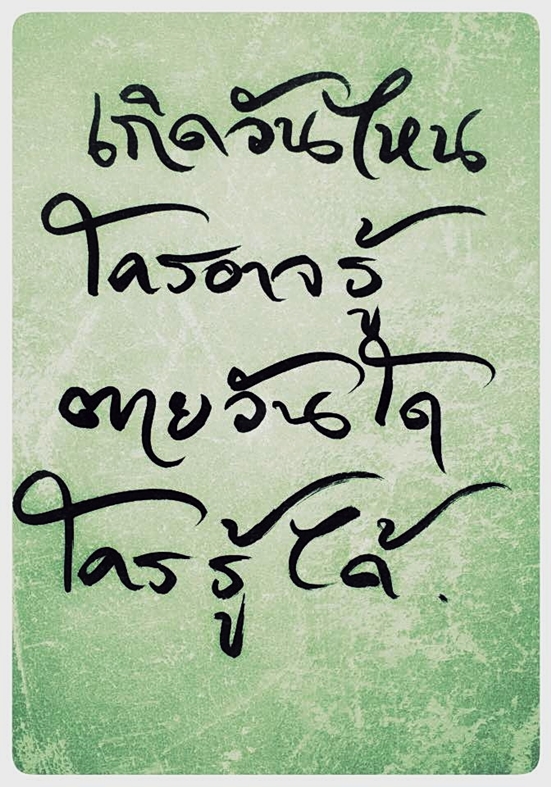 เกิดวันไหน
ใครอาจรู้
ตายวันใด
ใครรู้ได้.